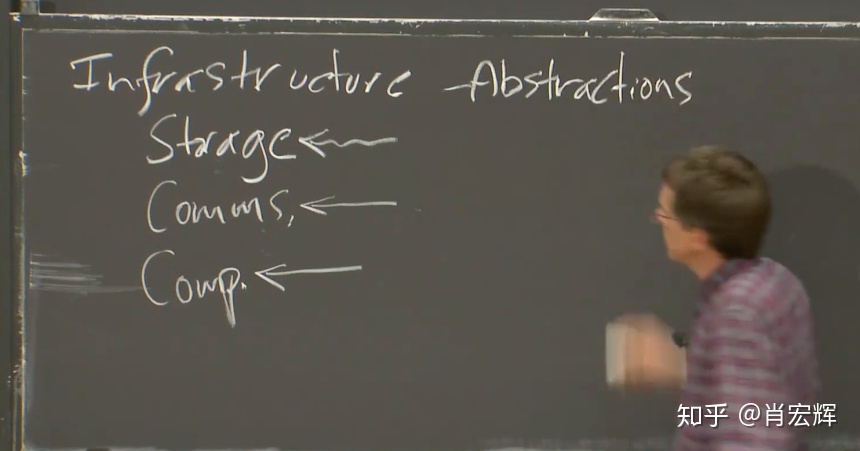 Infrastructure Abstractions
Storage
Comms.
Comp.
知乎 @肖宏辉